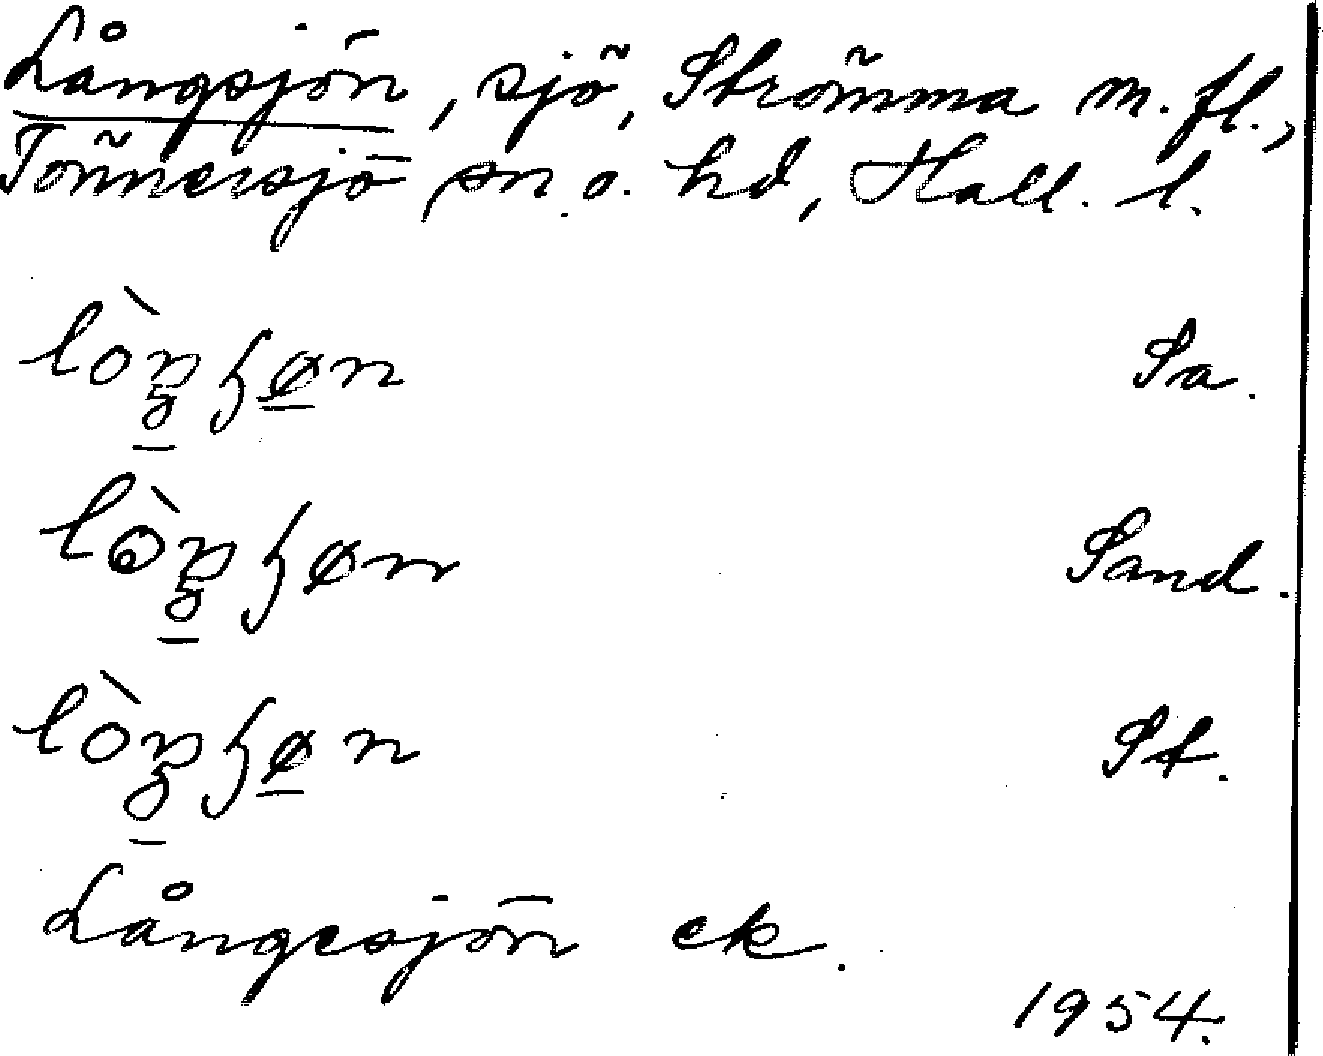 Långsjön, sjö, Strömma m. fl.,
Tönnersjö sn o. hd, Hall. l.
lòŋɧøn Sa.
lòŋɧøn Sand.
lòŋɧøn St.
Långesjön ek.
1954.